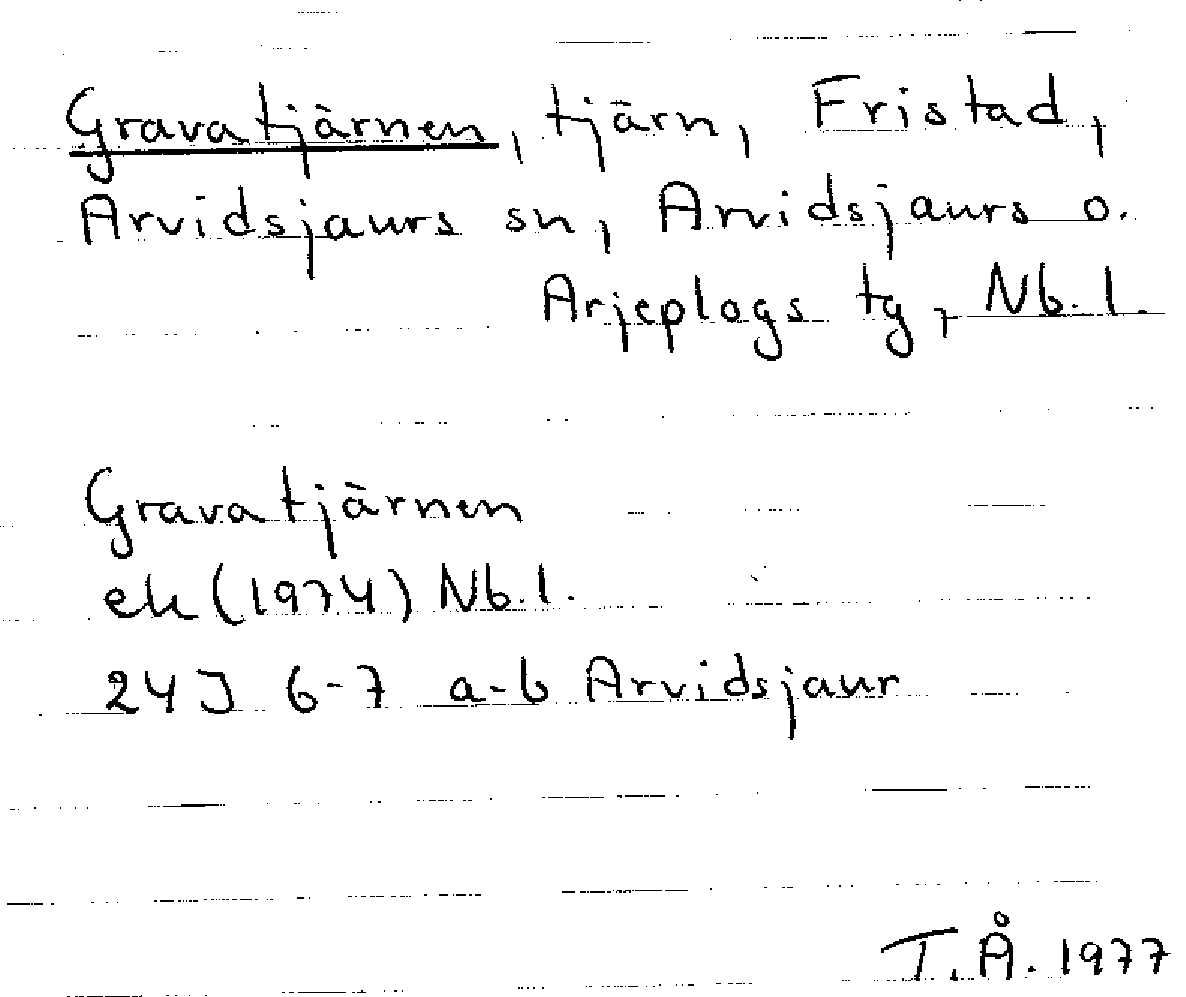 Gravatjärnen, tjärn, Fristad,
Arvidsjaurs sn, Arvidsjaurs o.
Arjeplogs tg, Nb. l.
Gravatjärnen
ek (1974) Nb. l.
24J 6-7 a-b Arvidsjaur
T.Å. 1977